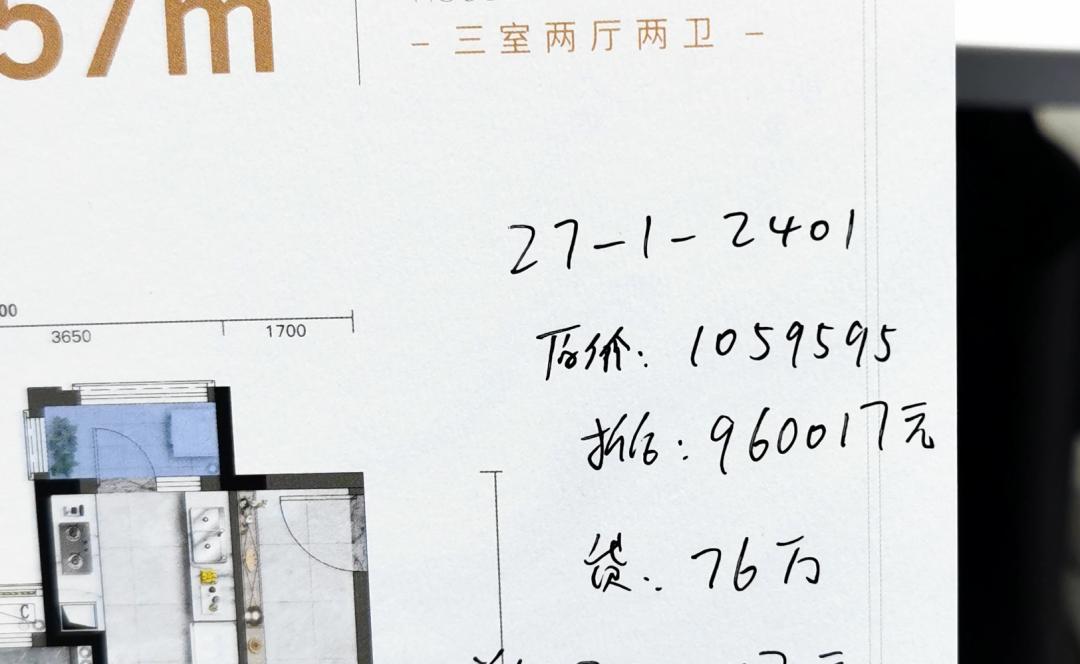 57m
– 三室两厅两卫 –
27-1-2401
原价: 1059595
折后: 960017元
贷: 76万
00
3650 1700
C